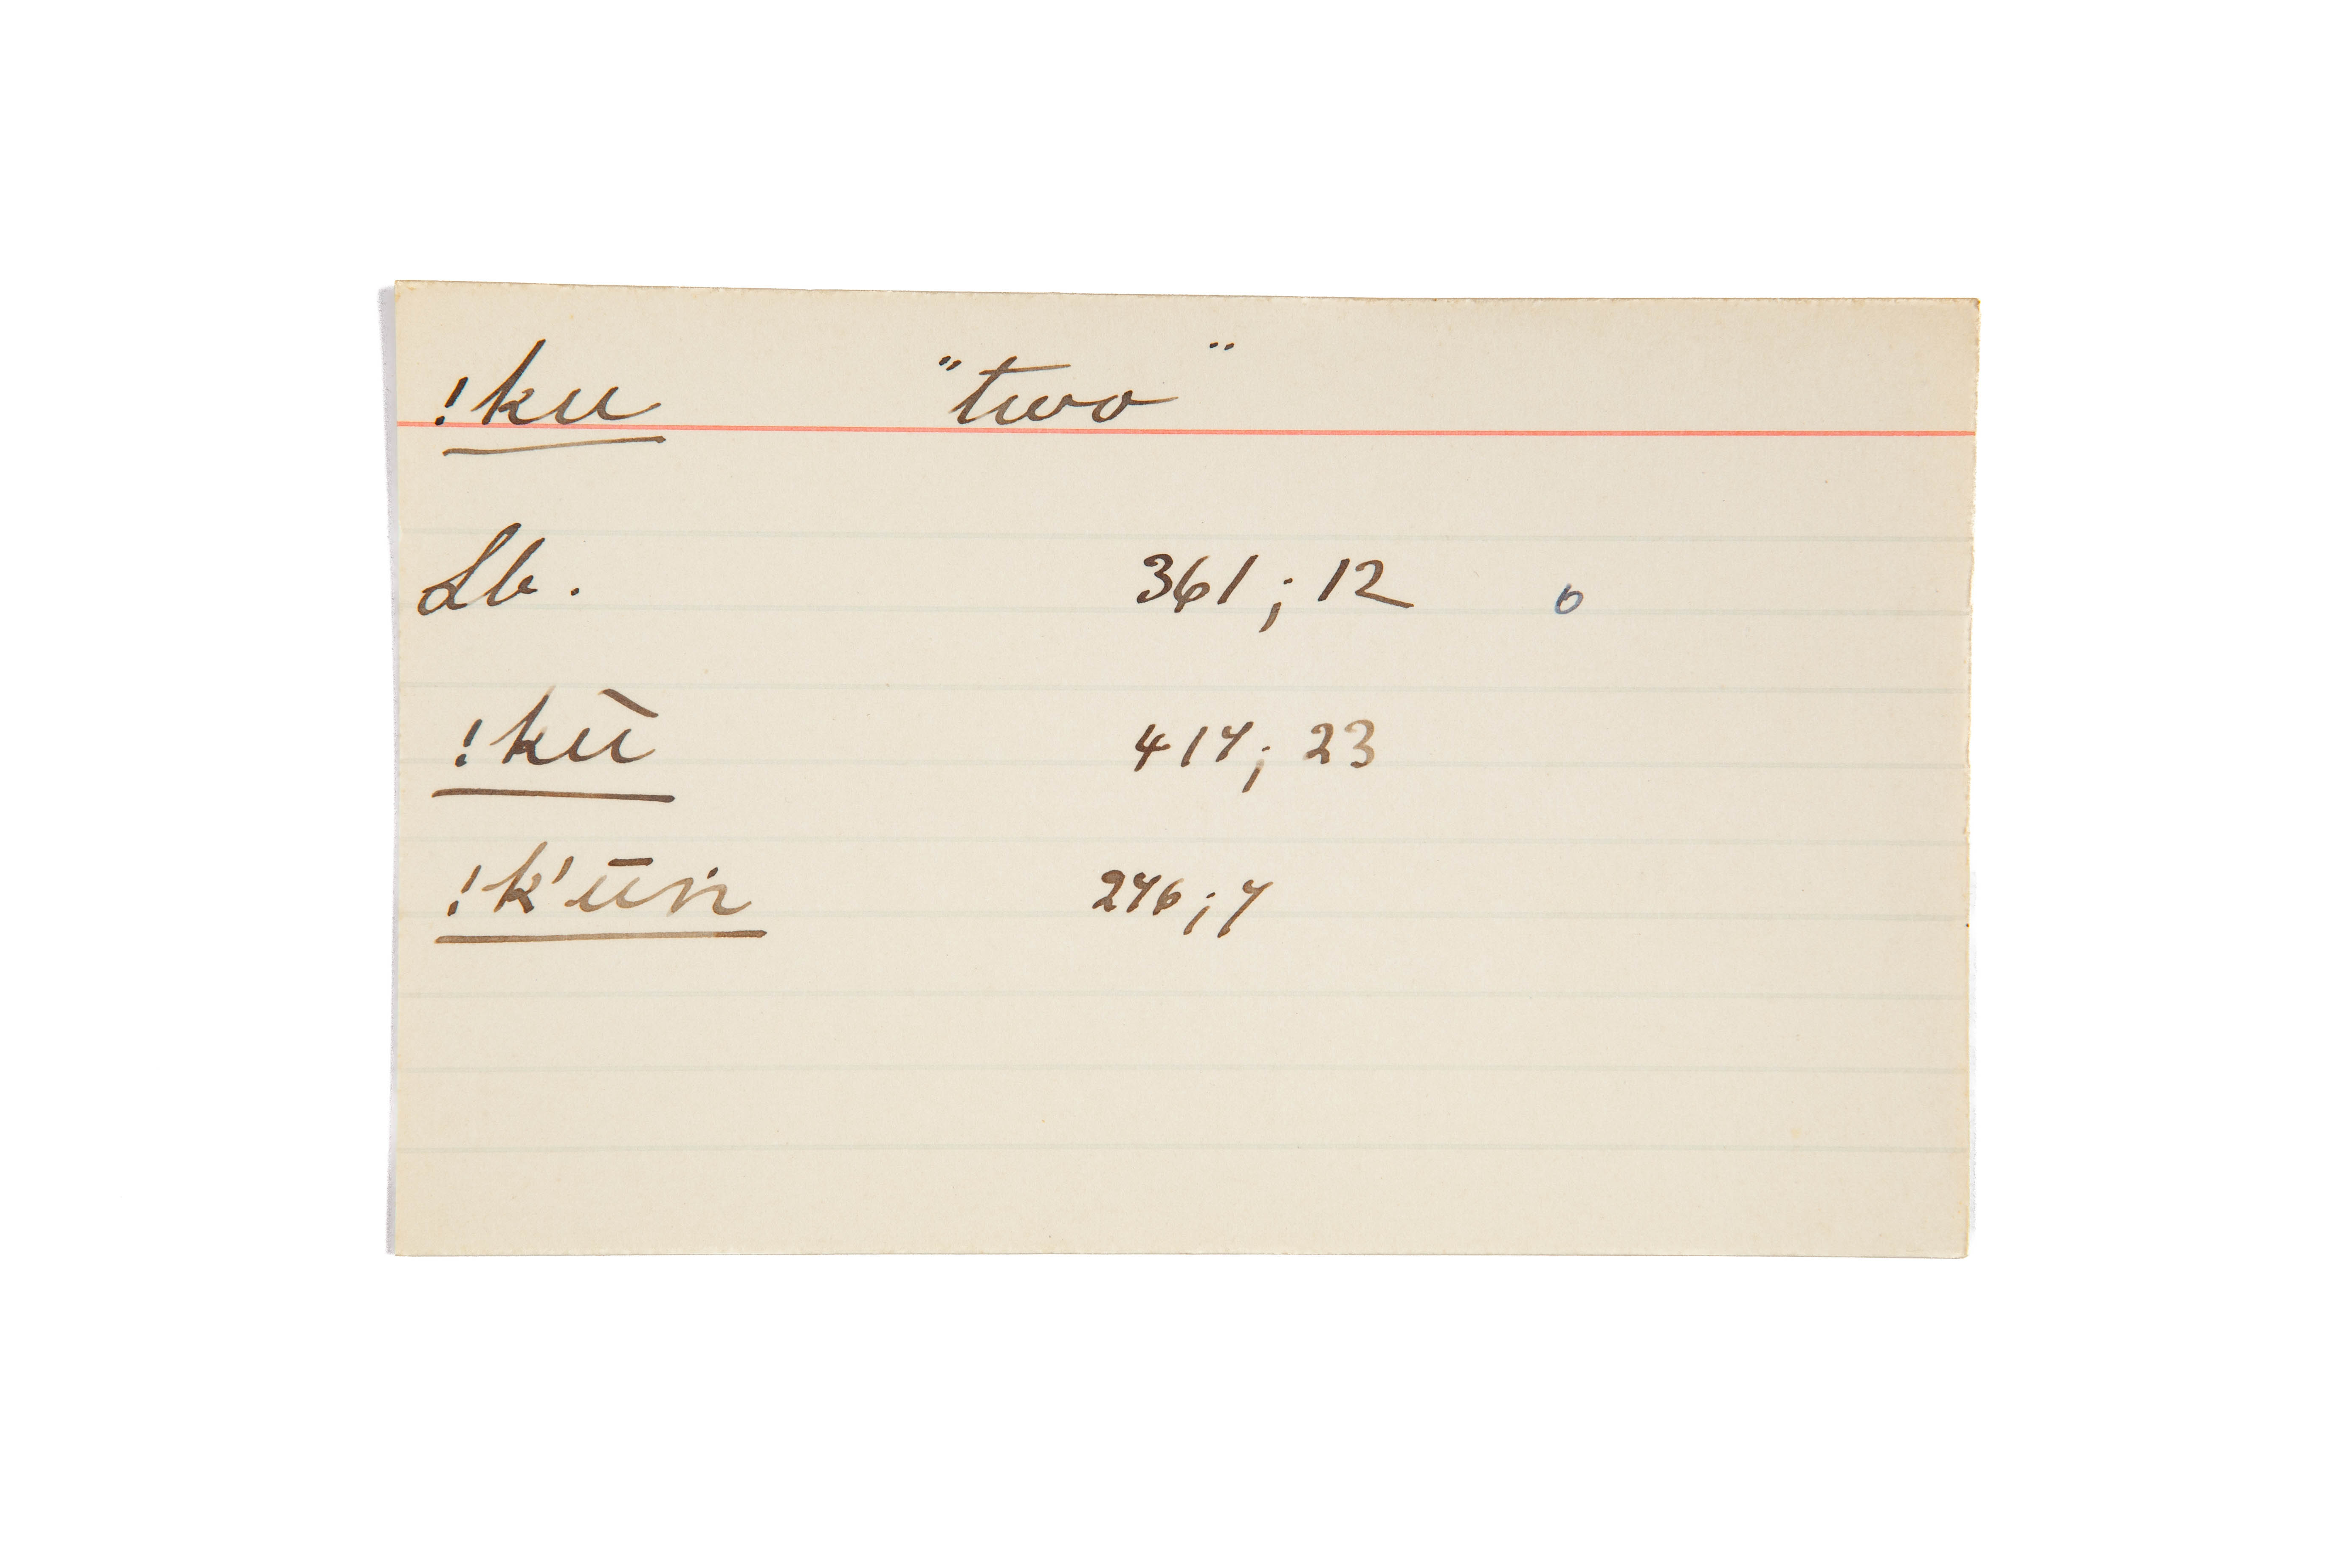 !ku "two"
Lb. 361; 12 o
!kū 417; 23
!k'ūṅ 276; 7